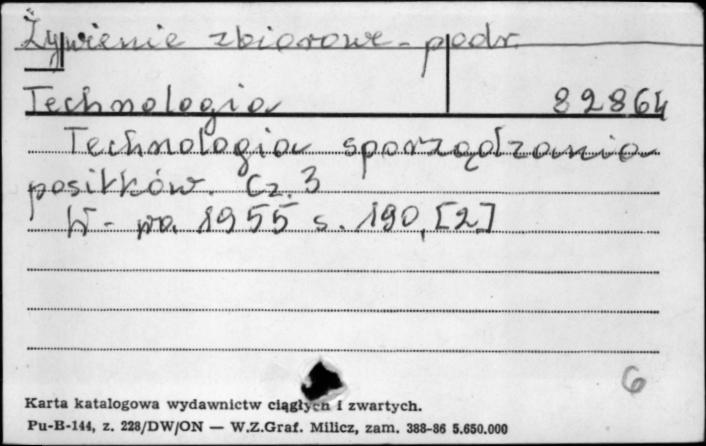 Żywienie zbiorowe - podr.
Technologia 82864
Technologia sporządzania
posiłków. Cz. 3
W-wa 1955 s. 190, [2]
6
Karta katalogowa wydawnictw ciągłych i zwartych.
Pu-B-144, z. 228/DW/ON — W.Z.Graf. Milicz, zam. 388-86 5.650.000